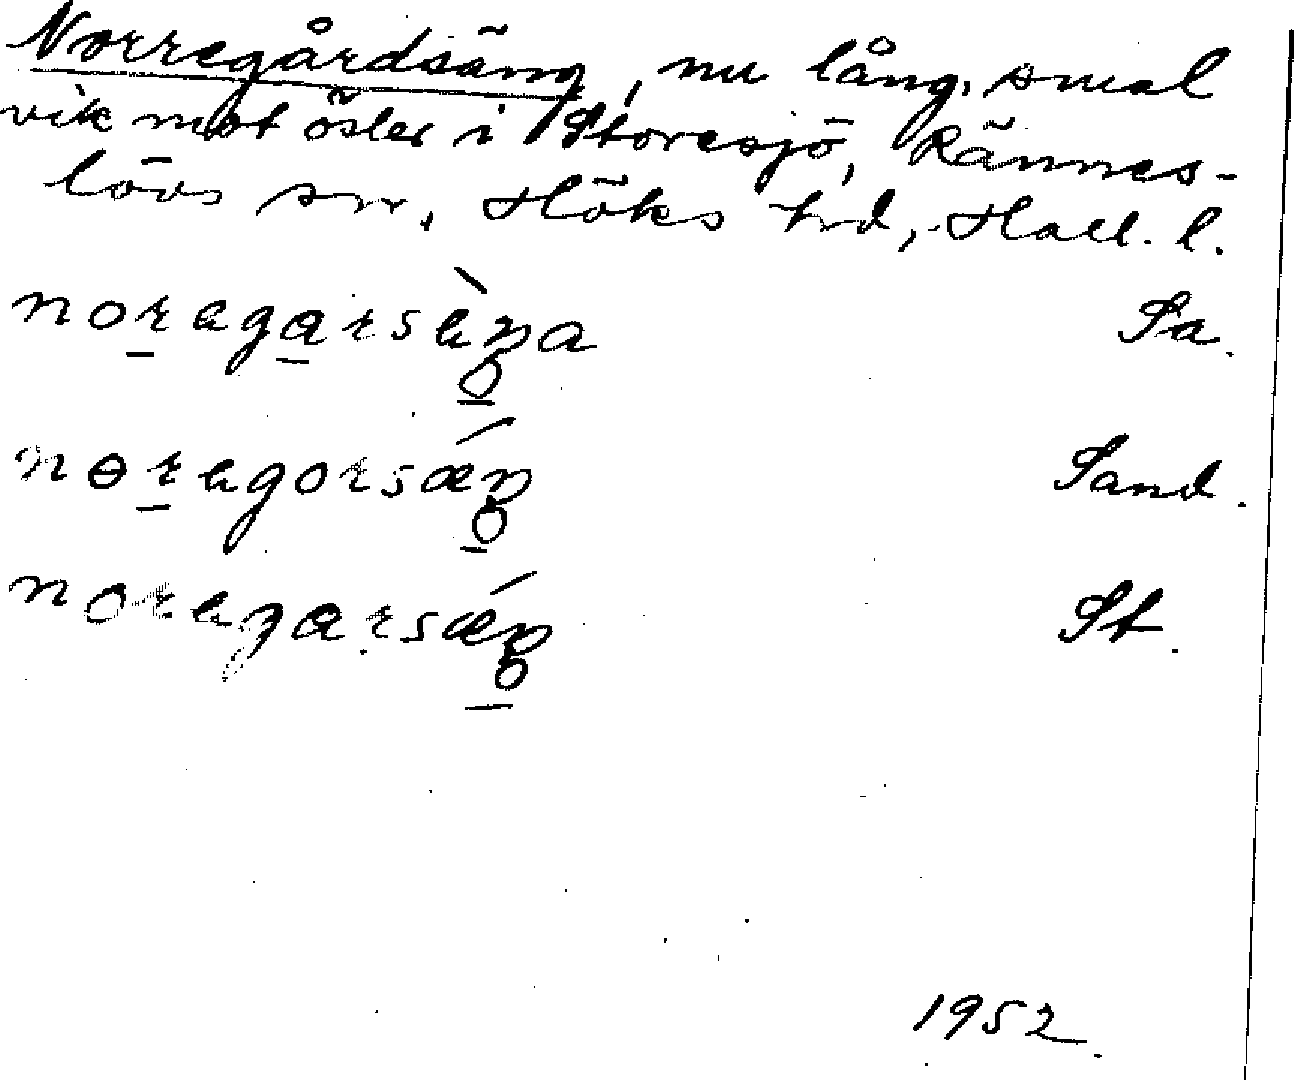 Norregårdsäng, nu lång, smal
vik mot öster i Storesjö, Rännes-
lövs sn, Höks hd, Hall. l.
noragarsàŋa Sa.
nɵragorsǽŋ Sand.
noragarsǽŋ St.
1952.